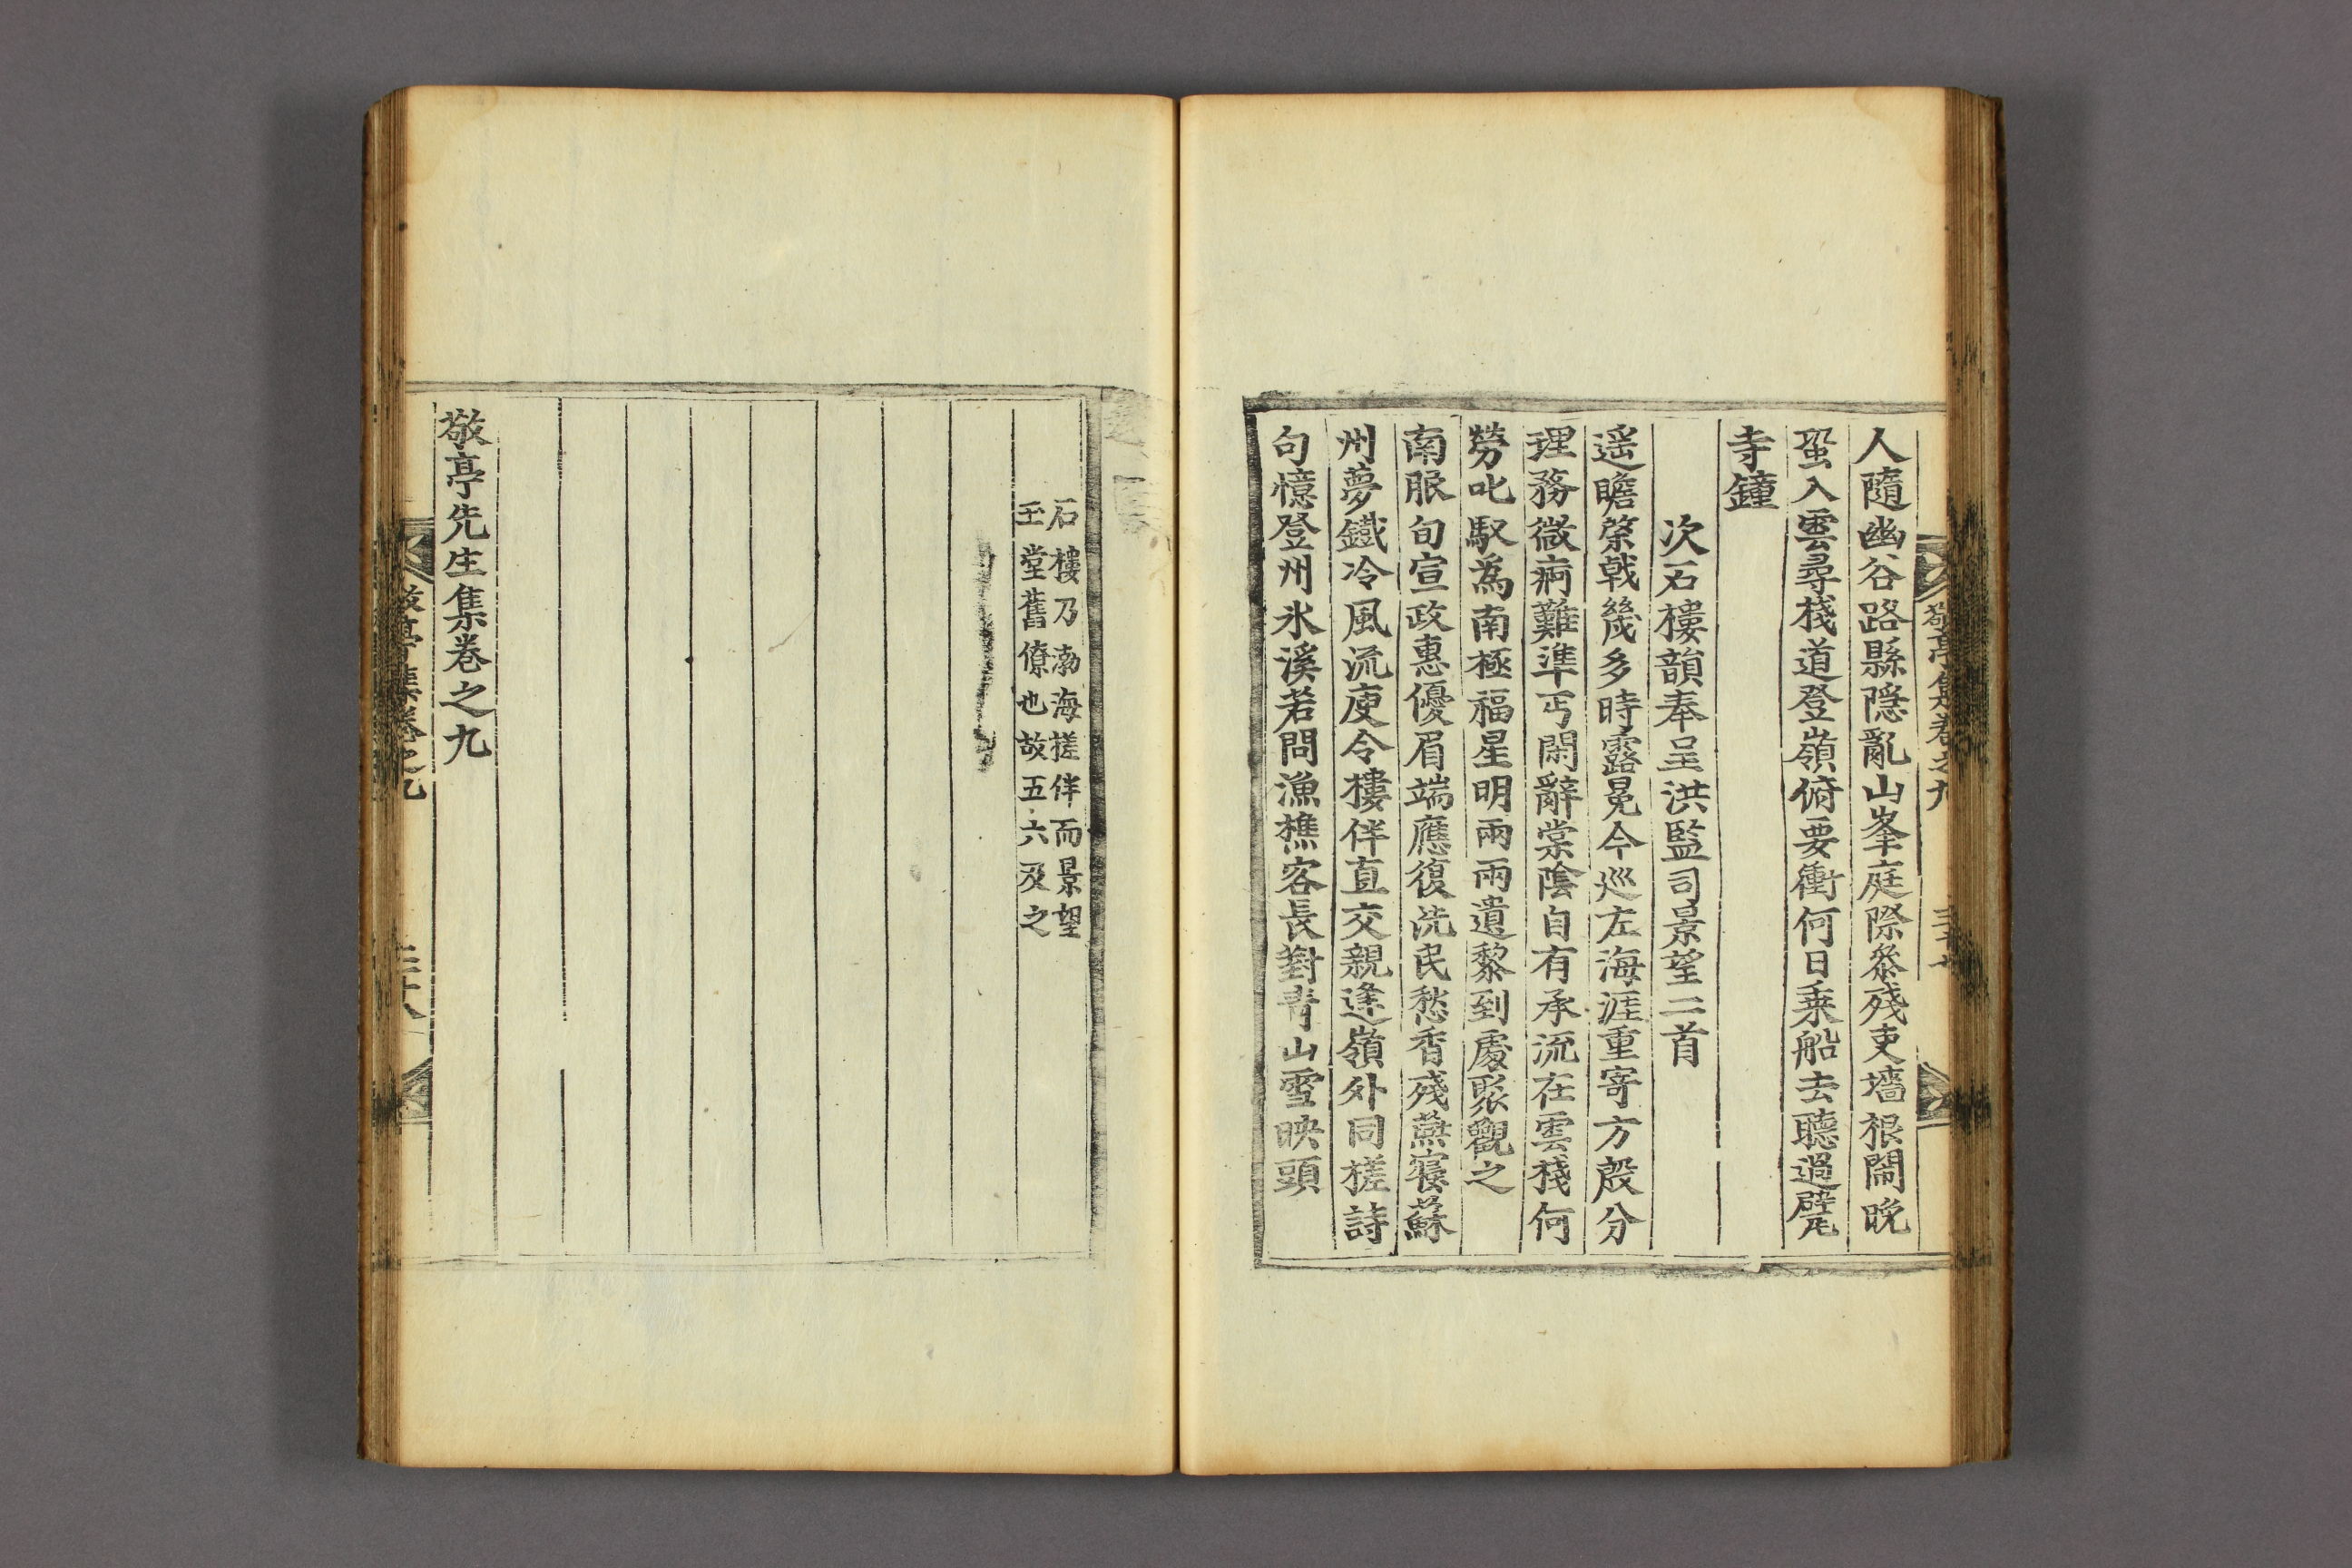 人隨幽谷路縣隱亂山峯庭際叅殘吏墻根鬧晚
蛩入雲尋棧道登嶺俯要衝何日乗船去聽過甓
寺鐘
次石樓韻奉呈洪監司景望二首
遥瞻棨戟幾多時露冕今巡左海涯重寄方殷分
理務微痾難準丐閑辭棠陰自有承流在雲棧何
勞叱馭為南極福星明兩兩遺黎到處聚觀之
南服旬宣政惠優眉端應復洗民愁香殘燕寢蘇
州夢鐵冷風流庾令樓伴直交親逢嶺外同槎詩
句憶登州氷溪若問漁樵客長對青山雪映頭
敬亭集卷之九
三十七
石樓乃渤海槎伴而景望
玉堂舊僚也故五六及之
敬亭先生集卷之九
敬亭集卷之九
三十八